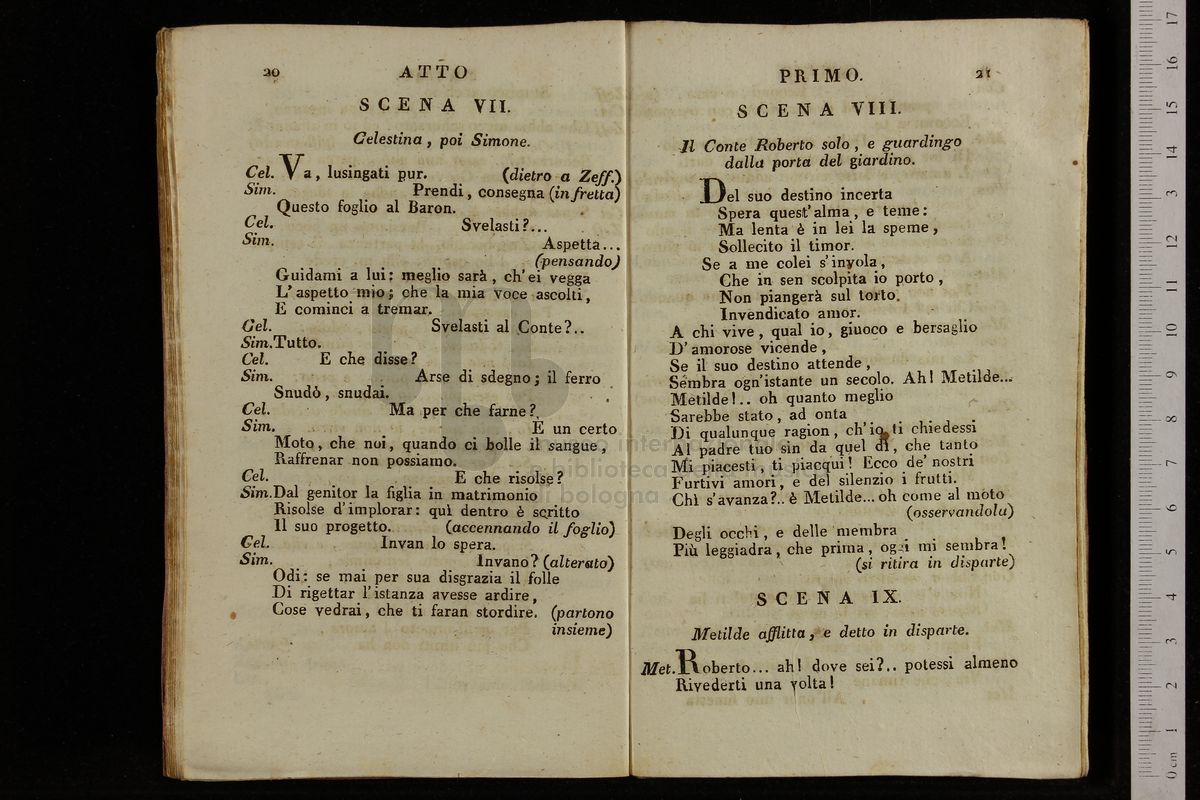 20 ATTO
SCENA VII.
Celestina, poi Simone.
Cel. Va, lusingati pur. (dietro a Zeff.)
Sim. Prendi, consegna (in fretta)
Questo foglio al Baron.
Cel. Svelasti?...
Sim. Aspetta...
(pensando)
Guidami a lui: meglio sarà, ch'ei vegga
L'aspetto mio; che la mia voce ascolti,
E cominci a tremar.
Cel. Svelasti al Conte?..
Sim. Tutto.
Cel. E che disse?
Sim. Arse di sdegno; il ferro
Snudò, snudai.
Cel. Ma per che farne?
Sim. E un certo
Moto, che noi, quando ci bolle il sangue,
Raffrenar non possiamo.
Cel. E che risolse?
Sim. Dal genitor la figlia in matrimonio
Risolse d'implorar: quì dentro è scritto
Il suo progetto. (accennando il foglio)
Cel. Invan lo spera.
Sim. Invano? (alterato)
Odi: se mai per sua disgrazia il folle
Di rigettar l'istanza avesse ardire,
Cose vedrai, che ti faran stordire. (partono
insieme)
PRIMO. 21
SCENA VIII.
Il Conte Roberto solo, e guardingo
dalla porta del giardino.
Del suo destino incerta
Spera quest'alma, e teme:
Ma lenta è in lei la speme,
Sollecito il timor.
Se a me colei s'invola,
Che in sen scolpita io porto,
Non piangerà sul torto
Invendicato amor.
A chi vive, qual io, giuoco e bersaglio
D'amorose vicende,
Se il suo destino attende,
Sembra ogn'istante un secolo. Ah! Metilde...
Metilde!.. oh quanto meglio
Sarebbe stato, ad onta
Di qualunque ragion, ch'io ti chiedessi
Al padre tuo sin da quel dì, che tanto
Mi piacesti, ti piacqui! Ecco de' nostri
Furtivi amori, e del silenzio i frutti.
Chì s'avanza?.. è Metilde... oh come al moto
(osservandola)
Degli occhi, e delle membra
Più leggiadra, che prima, oggi mi sembra!
(si ritira in disparte)
SCENA IX.
Metilde afflitta, e detto in disparte.
Met. Roberto... ah! dove sei?.. potessi almeno
Rivederti una volta!